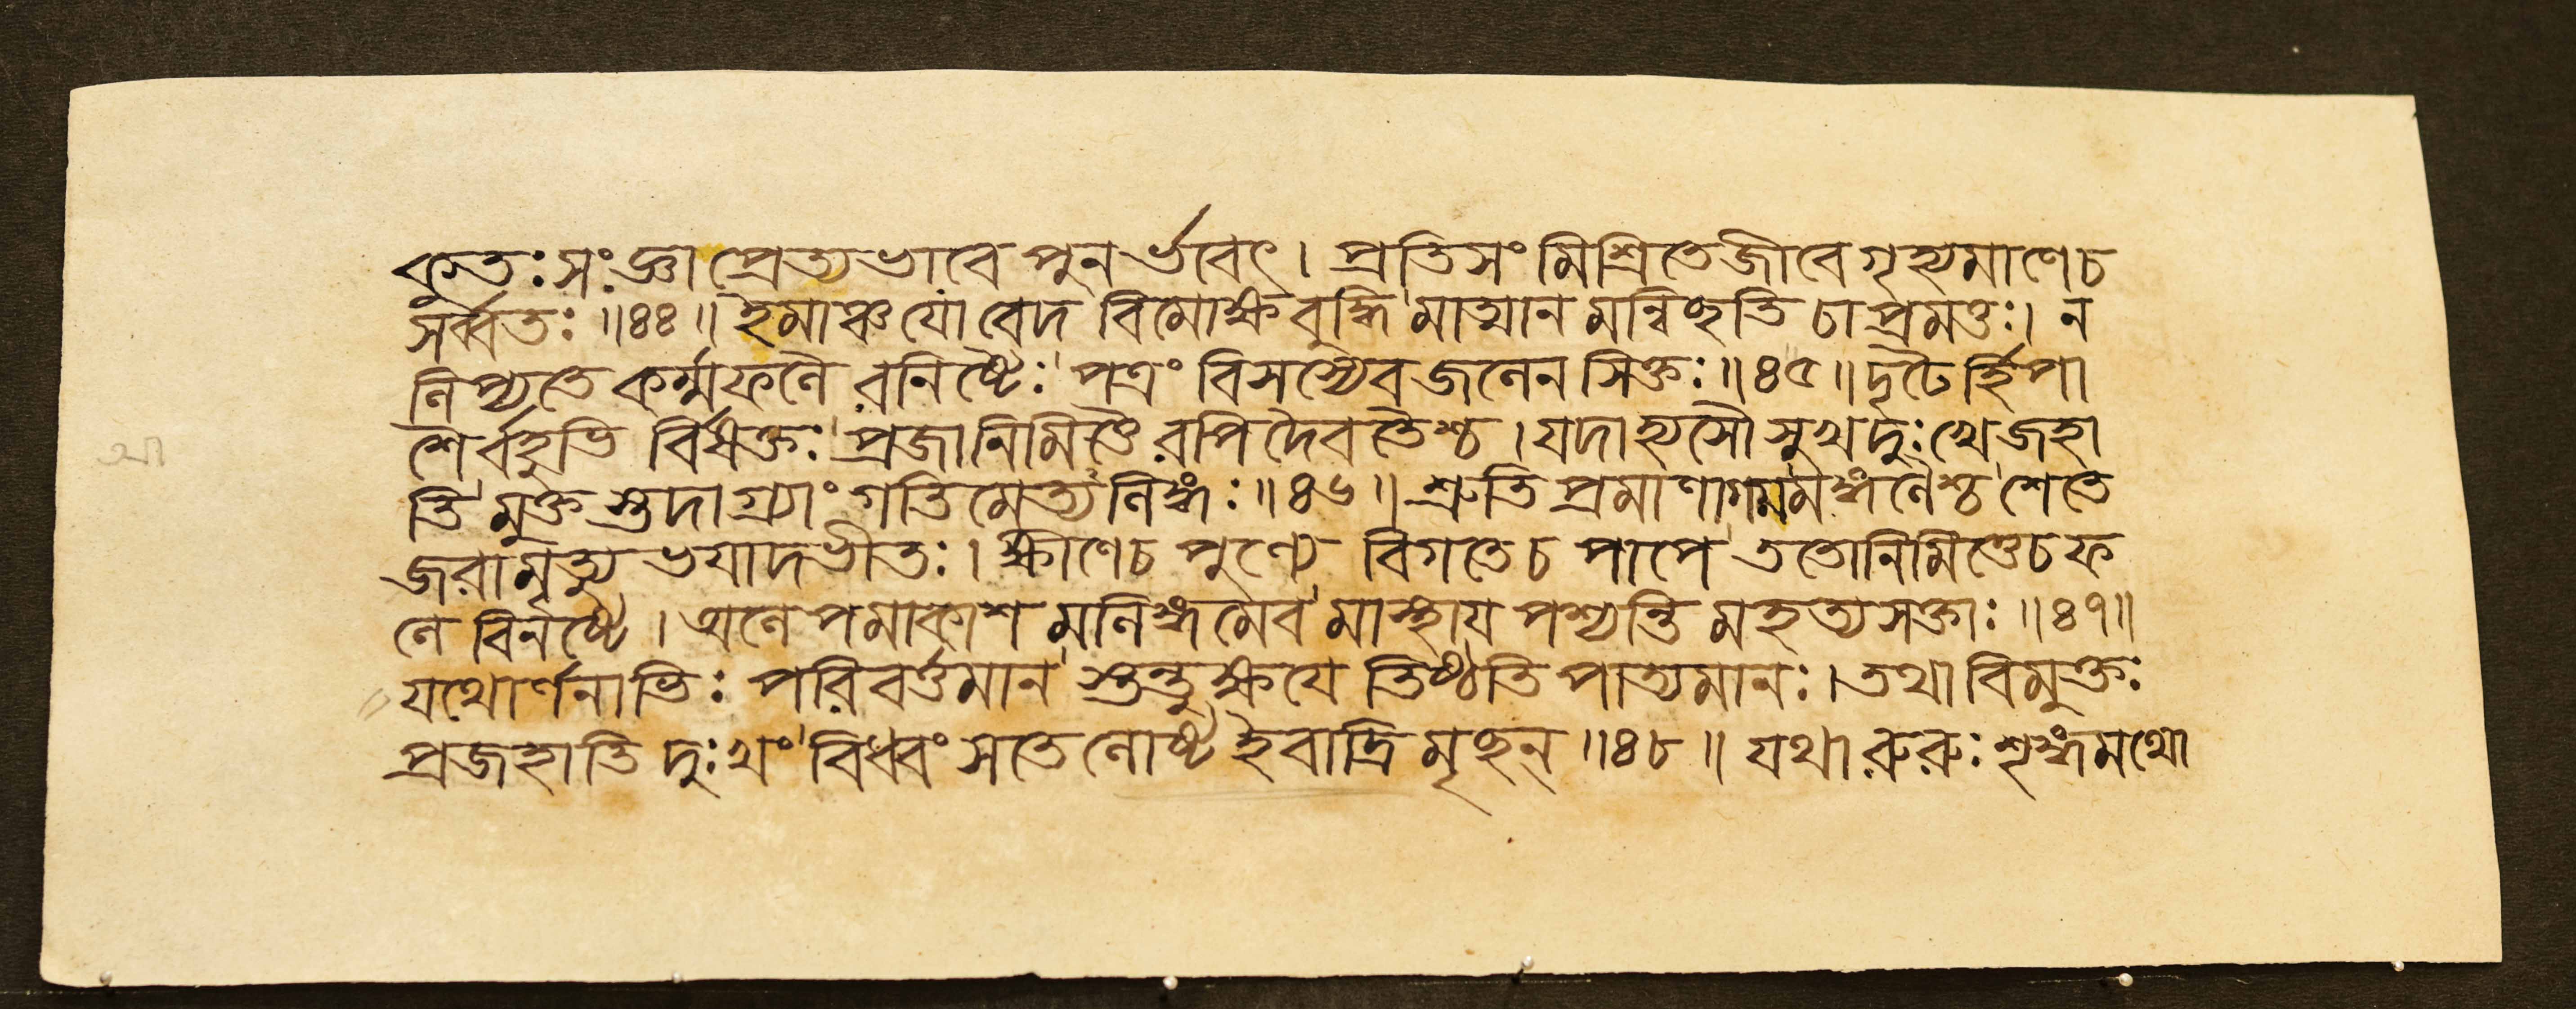 কুতঃ সংজ্ঞা প্রেত্যভাবে পুনর্ভবেৎ। প্রতিসংমিশ্রিতে জীবে গৃহ্যমাণে চ
সর্ব্বতঃ॥৪৪॥ ইমাঞ্চ যো বেদ বিমোক্ষবুদ্ধিমাত্মানমন্বিচ্ছতি চাপ্রমত্তঃ। ন
লিপ্যতে কর্ম্মফলৈরনিষ্টৈঃ পত্রং বিসস্যেব জলেন সিক্তঃ॥৪৫॥ দৃঢৈর্হি পা
শৈর্বহুভির্বিমুক্তঃ প্রজানিমিত্তৈরপি দৈবতৈশ্চ। যদা হ্যসৌ সুখদুঃখে জহা
তি মুক্তস্তদাগ্র্যাং গতিমেত্যলিঙ্গঃ॥৪৬॥ শ্রুতিপ্রমাণাগমমঙ্গলৈশ্চ শেতে
জরামৃত্যুভযাদভীতঃ। ক্ষীণে চ পুণ্যে বিগতে চ পাপে ততো নিমিত্তে চ ফ
লে বিনষ্টে। অলেপমাকাশমলিঙ্গমেবমাস্থায পশ্যন্তি মহত্যসক্তাঃ॥৪৭॥
যথোর্ণনাভিঃ পরিবর্ত্তমানস্তন্তুক্ষযে তিষ্ঠতি পাত্যমানঃ। তথা বিমুক্তঃ
প্রজহাতি দুঃখং বিধ্বংসতে লোষ্ট ইবাদ্রিমৃচ্ছন্॥৪৮॥ যথা রুরুঃ শৃঙ্গমথো